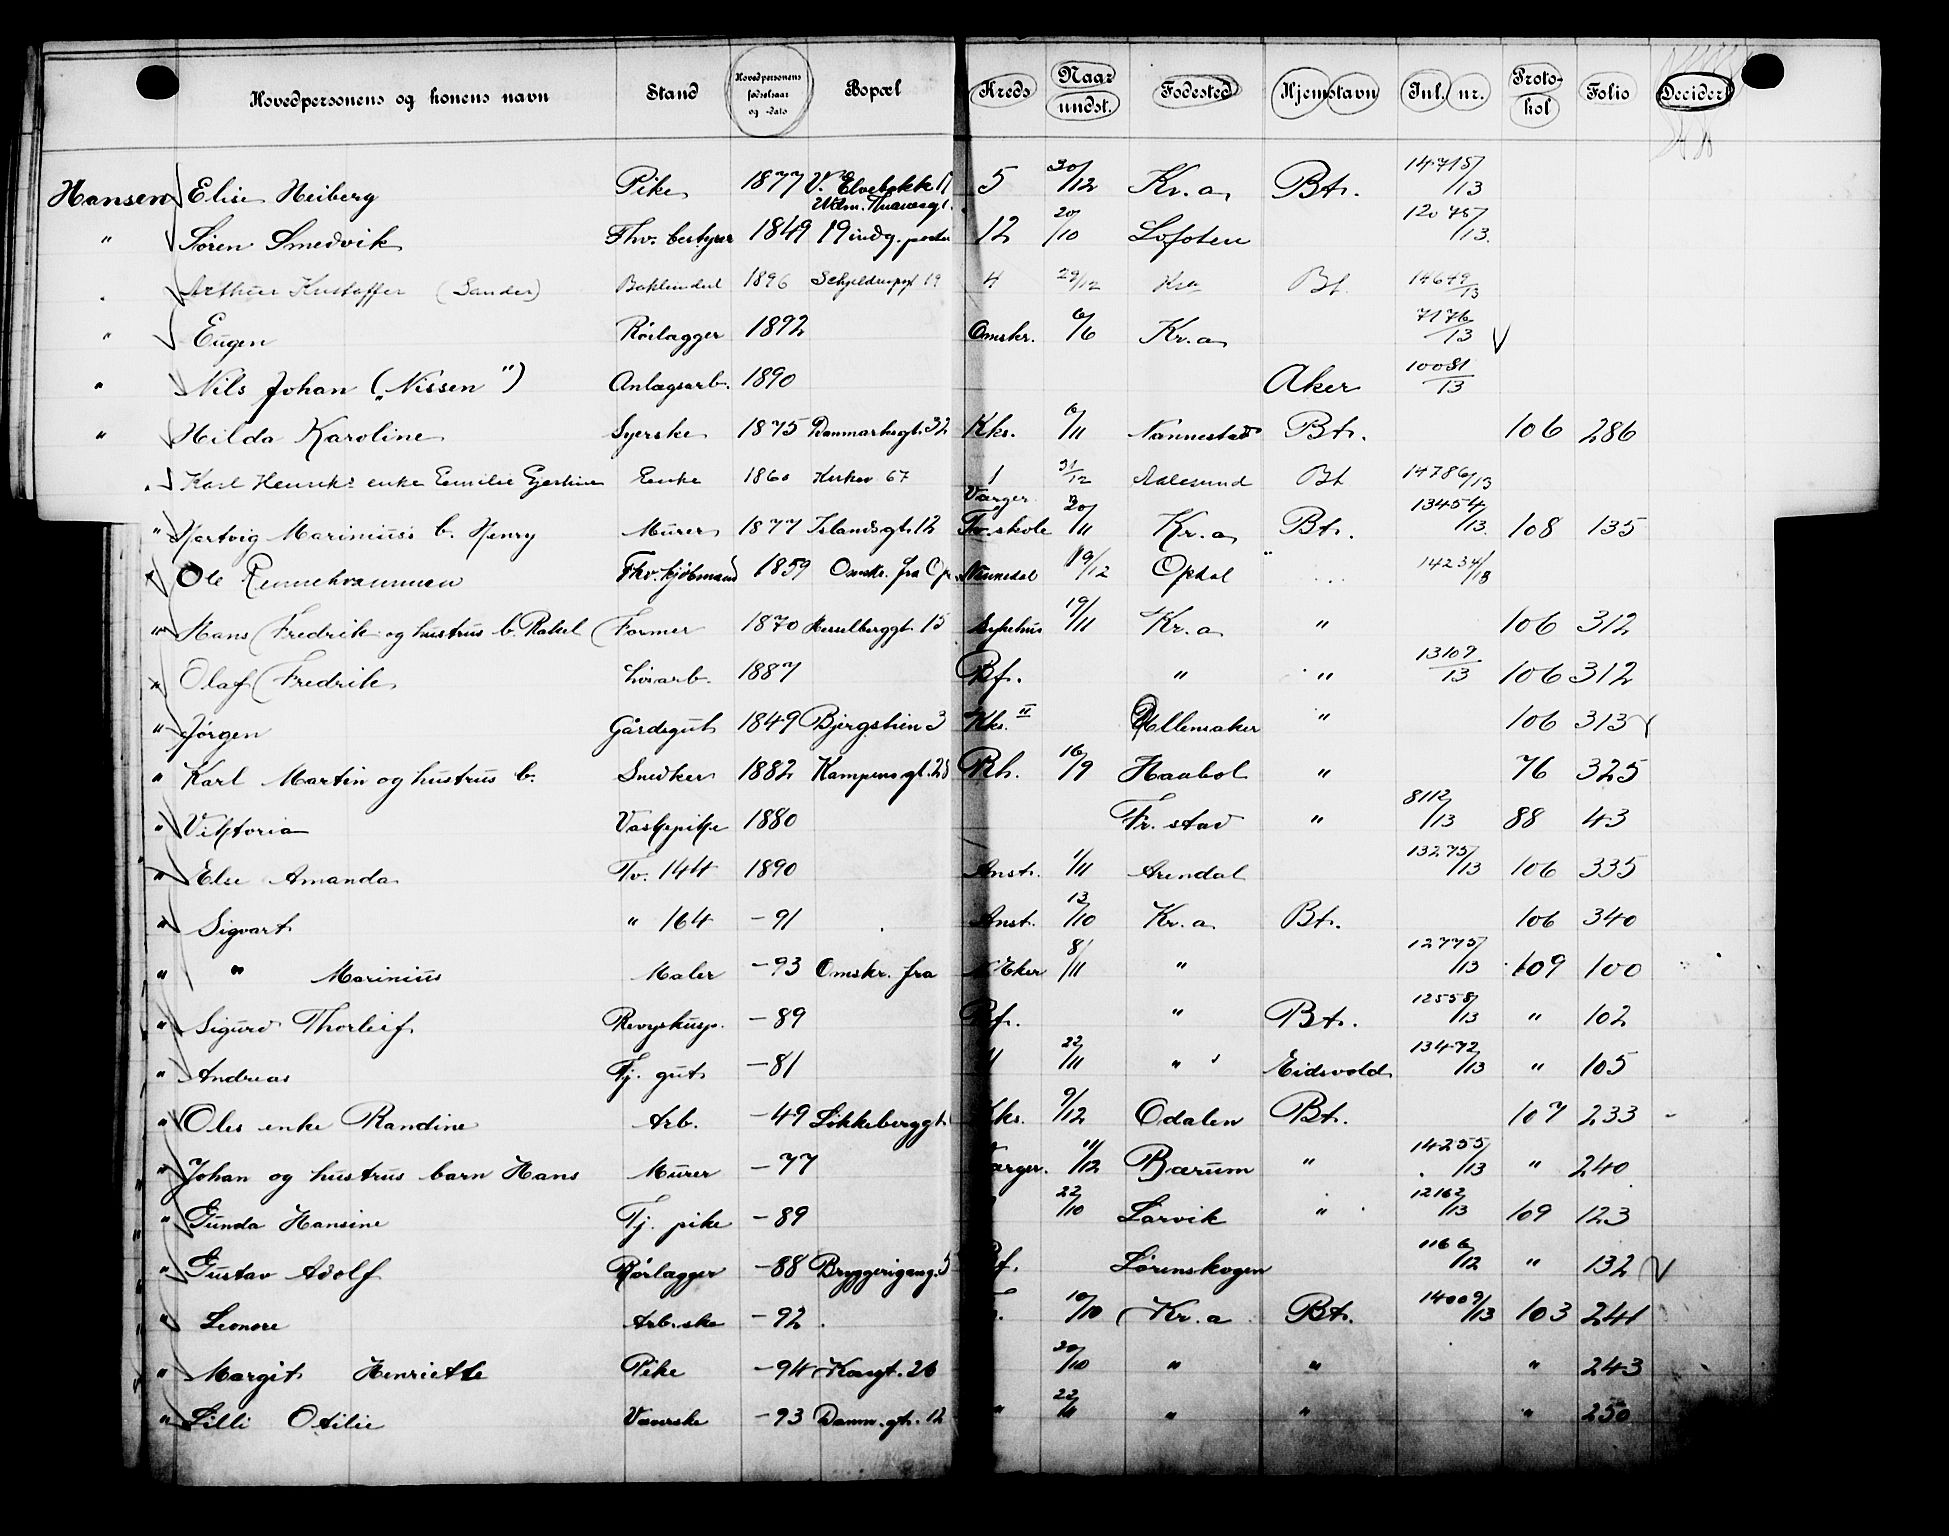 Hovedpersonens og konens navn Stand Hovedpersonens fødselsaar og -dato Bopæl Kreds Naar undst. Fødested Hjemstavn Jnl. nr. Protokol Folio Decidert
Hansen Elise Heiberg Pike 1877 V. Elvebakke 5 30/12 Kr.a Bt. 14715/13
" Søren Smedvik Fhv. bestyrer 1849 19 indg. 12 20/10 Lofoten 12075/13
" Arthur Kristoffer (Sander) 1896 19 4 29/12 Kra Bt. 14649/13
" Eugen Rørlægger 1892 Omskr. 6/6 Kr.a 7176/13
" Nils Johan („Nissen") Anlægsarb. 1890 Aker 10081/13
" Hilda Karoline Syerske 1875 Danmarksgt. 32 Kks. 6/11 Nannestad Bt. 106 286
" Karl Henriks enke Emilie Enke 1860 Kirkev 67 1 31/12 Aalesund Bt 14786/13
" Hartvig Marinius's b. Henry Murer 1877 Islandsgt. 12 Værger Tv. skole 20/11 Kr.a Bt. 13454/13 108 135
" Ole Fhv. kjøbmand 1859 Omskr. fra 19/12 Opdal " 14234/13
" Hans Fredrik og hustrus b. Rakel Former 1870 Hesselberggt. 15 Sykehus 19/11 Kr.a " 106 312
" Olaf Fredrik Løsarb. 1887 Bf. " " 13109/13 106 312
" Jørgen Gårdsgut 1849 Bjergstien 3 Kks. II Ullensaker " 106 313
" Karl Martin og hustrus b. Snedker 1882 Kampensgt. 28 Rh. 16/9 Haabøl " 76 325
" Viktoria Vaskepike 1880 Fr. stad " 8112/13 88 43
" Else Amanda Tv. 144 1890 Anst. 1/11 Arendal 13275/13 106 335
" Sigvart " 164 -91 Anst. 13/10 Kr.a Bt. 106 340
" " Marinius Maler -93 Omskr. fra N Eker 8/11 " 12775/13 109 100
" Sigurd Thorleif -89 Bf. " Bt. 12558/13 " 102
" Andreas Tj. gut -81 11 22/11 " Eidsvold 13472/13 " 105
" Oles enke Randine Arb. -49 Løkkeberggt. Kks. 9/12 Odalen Bt. 107 233
" Johan og hustrus barn Hans Murer -77 Værger. 11/12 Bærum " 14255/13 " 240
" Gunda Hansine Tj. pike -89 22/10 Larvik " 12162/13 109 123
" Gustav Adolf Rørlægger -88 Bryggerigang. 5 Bf. Lørenskogen 1166/12 " 132
" Leonore Arb.ske -92 10/10 Kr.a Bt. 14009/13 103 241
" Margit Henriette Pike -94 26 20/10 " " " 243
" Lilli Otilie -93 Damm.gt. 12 " 22/11 " " " 250